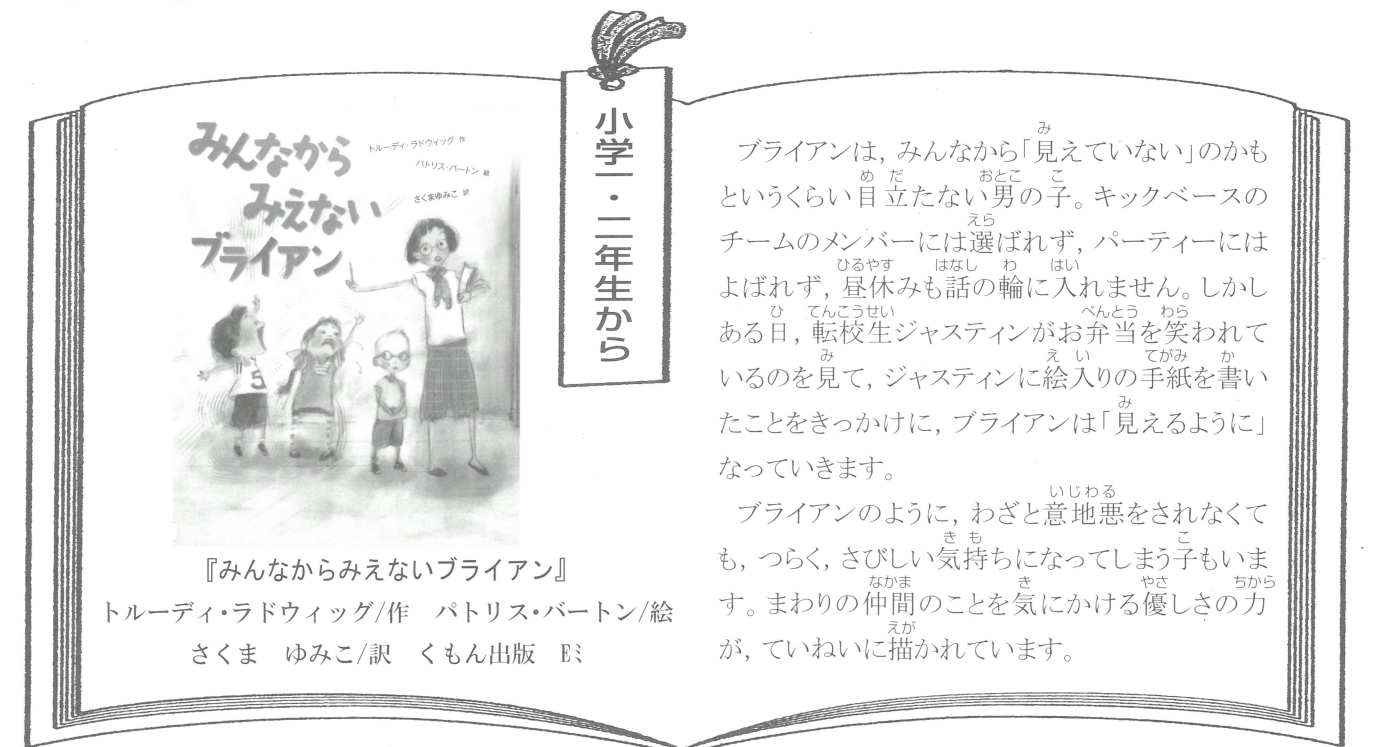 みんなから
みえない
ブライアン
トルーディ・ラドウィッグ 作
パトリス・バートン 絵
さくまゆみこ 訳
5
『みんなからみえないブライアン』
トルーディ・ラドウィッグ/作　パトリス・バートン/絵
さくま　ゆみこ/訳　くもん出版　Eミ
小学一・二年生から
ブライアンは，みんなから「見えていない」のかも
というくらい目立たない男の子。キックベースの
チームのメンバーには選ばれず，パーティーには
よばれず，昼休みも話の輪に入れません。しかし
ある日，転校生ジャスティンがお弁当を笑われて
いるのを見て，ジャスティンに絵入りの手紙を書い
たことをきっかけに，ブライアンは「見えるように」
なっていきます。
ブライアンのように，わざと意地悪をされなくて
も，つらく，さびしい気持ちになってしまう子もいま
す。まわりの仲間のことを気にかける優しさの力
が，ていねいに描かれています。